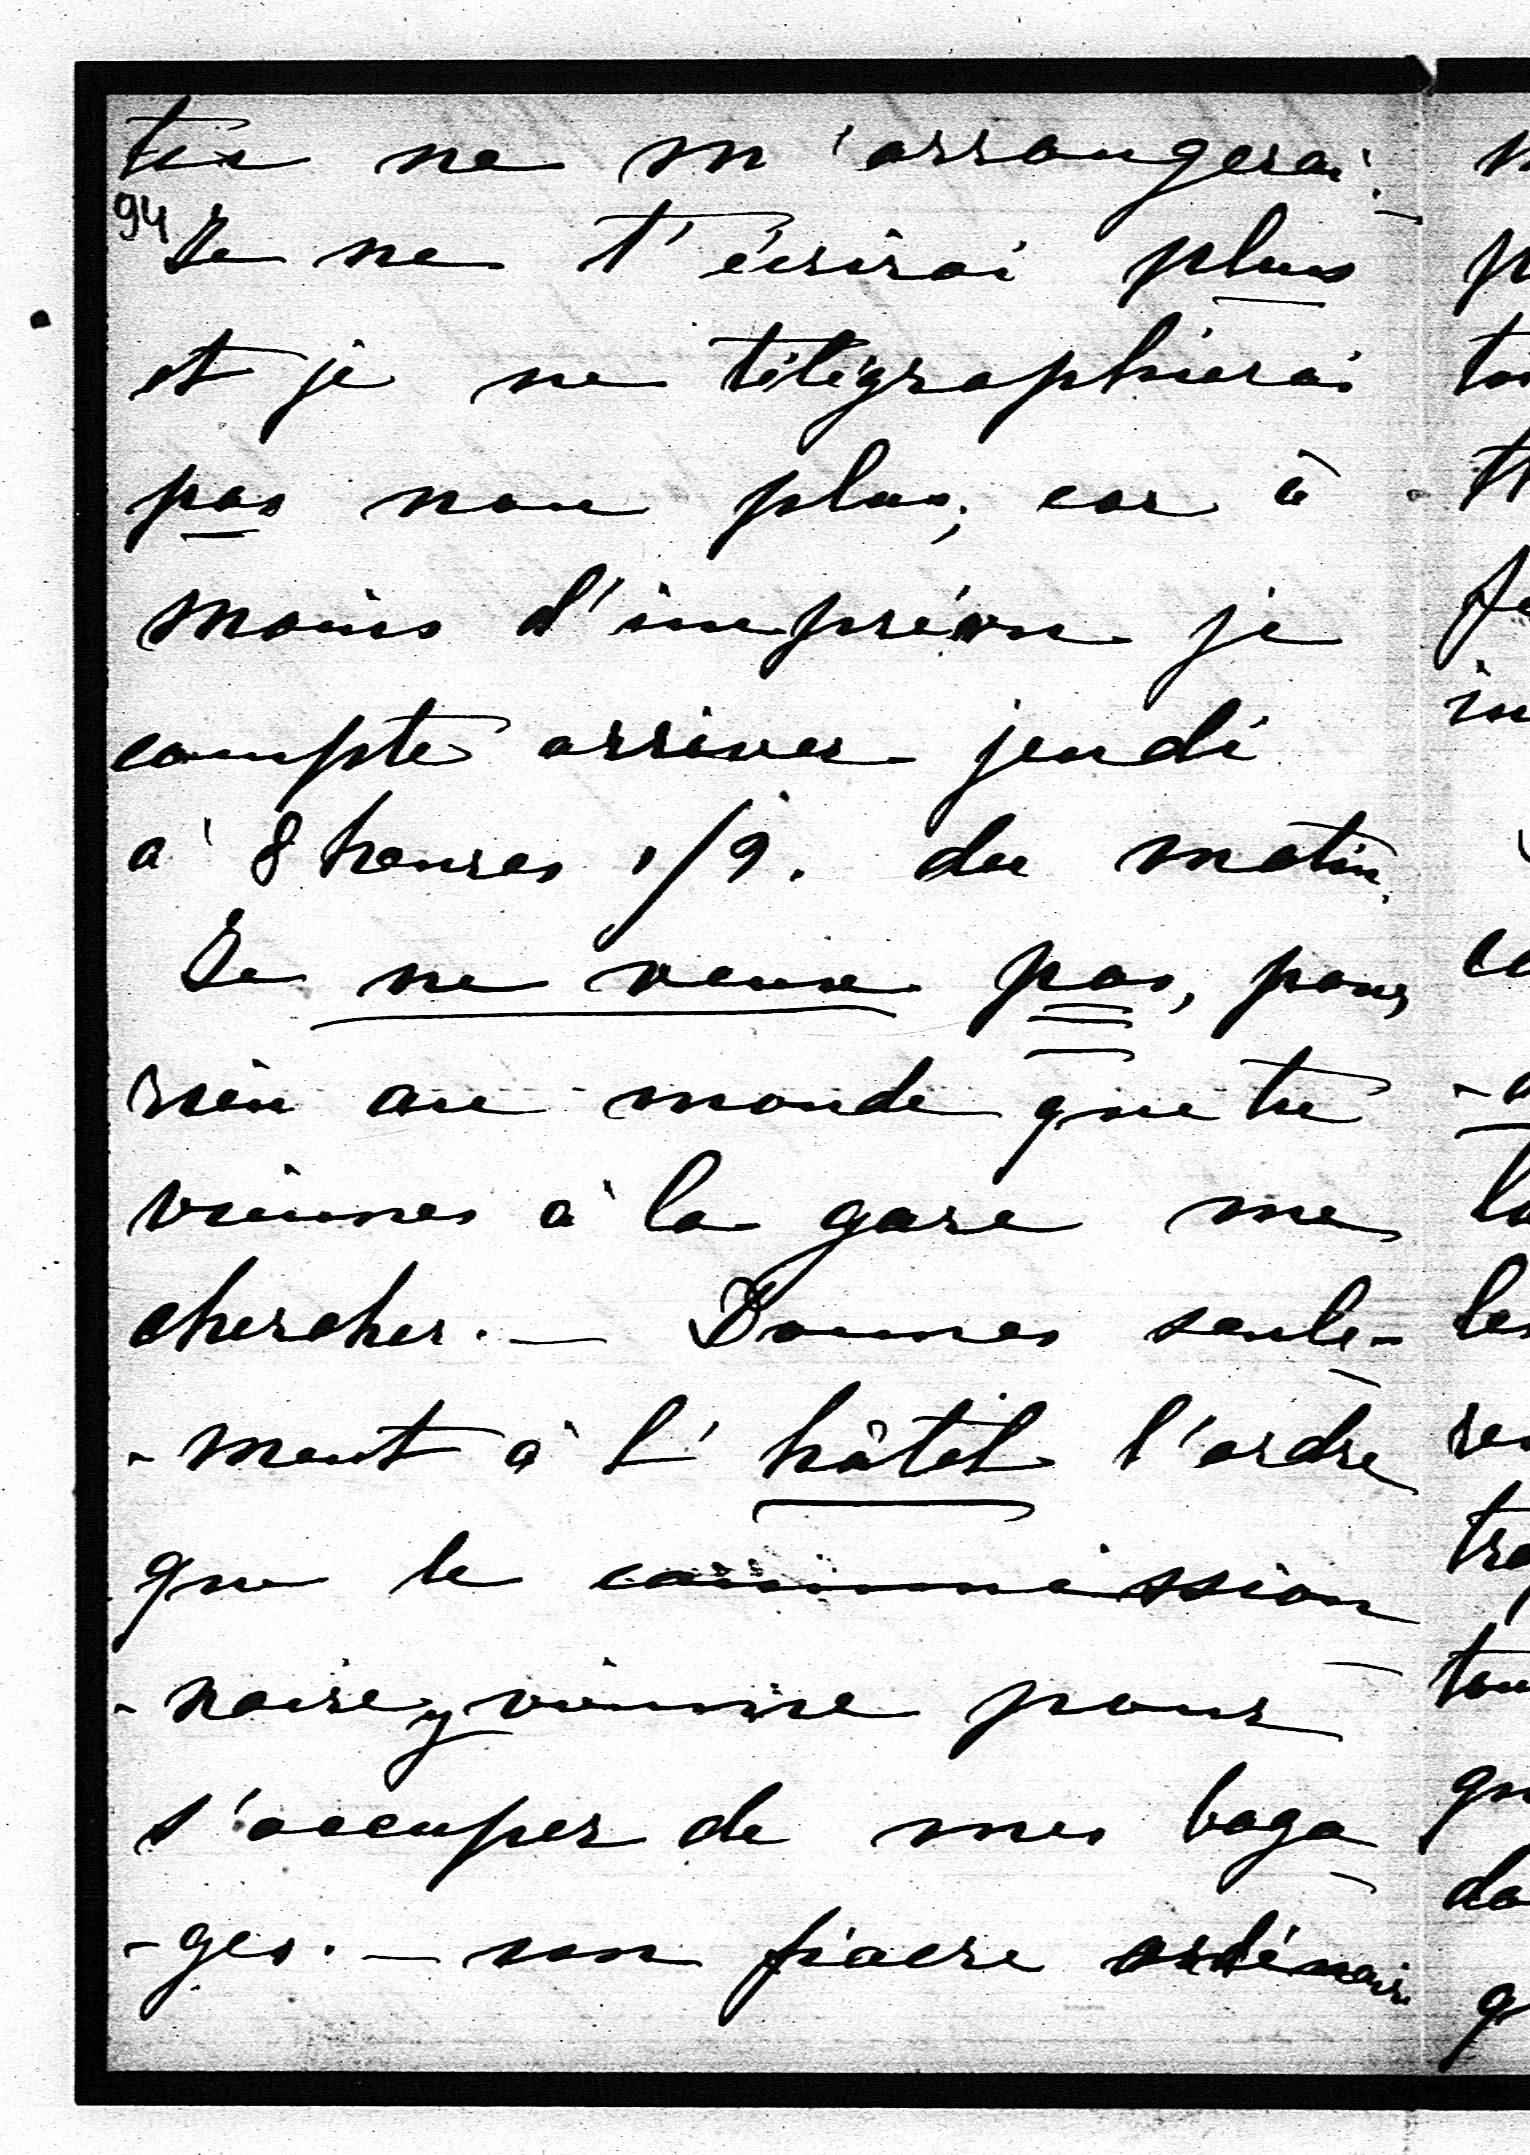 tu ne m'arrangerai.
94
Je ne t'écrirai plus
et je ne télégraphierai
pas non plus, car à
moins d'imprévu je
compte arriver jeudi
à 8 heures 1/2. du matin.
Je ne veux pas, pour
rien au monde que tu
viennes à la gare me
chercher. — Donnes seule-
-ment à l'hôtel l'ordre
que le commission
-naire y vienne pour
s'occuper de mes baga
-ges. — un fiacre ordinair